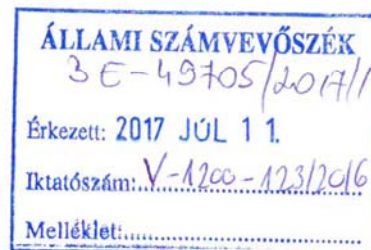 ÁLLAMI SZÁMVEVŐSZÉK
BE-49705/2017/1
Érkezett: 2017 JÚL 11.
Iktatószám: V-1200-123/2016
Melléklet: